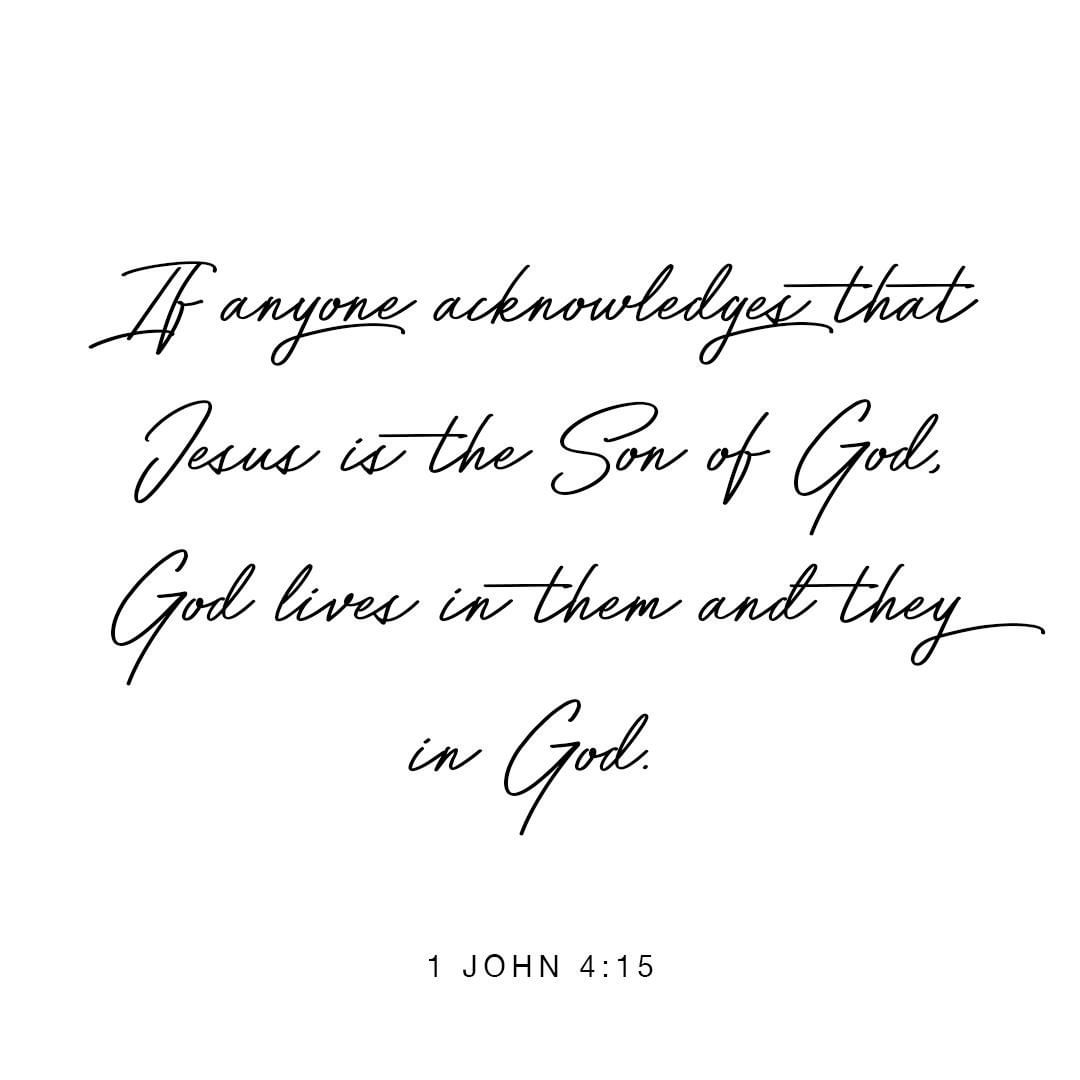 If anyone acknowledges that
Jesus is the Son of God,
God lives in them and they
in God.
1 JOHN 4:15